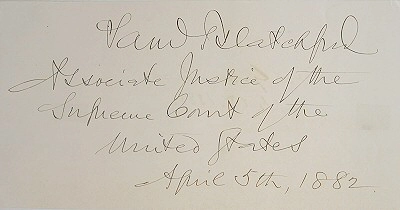 Saml Blatchford
Associate Justice of the
Supreme Court of the
United States
April 5th, 1882.